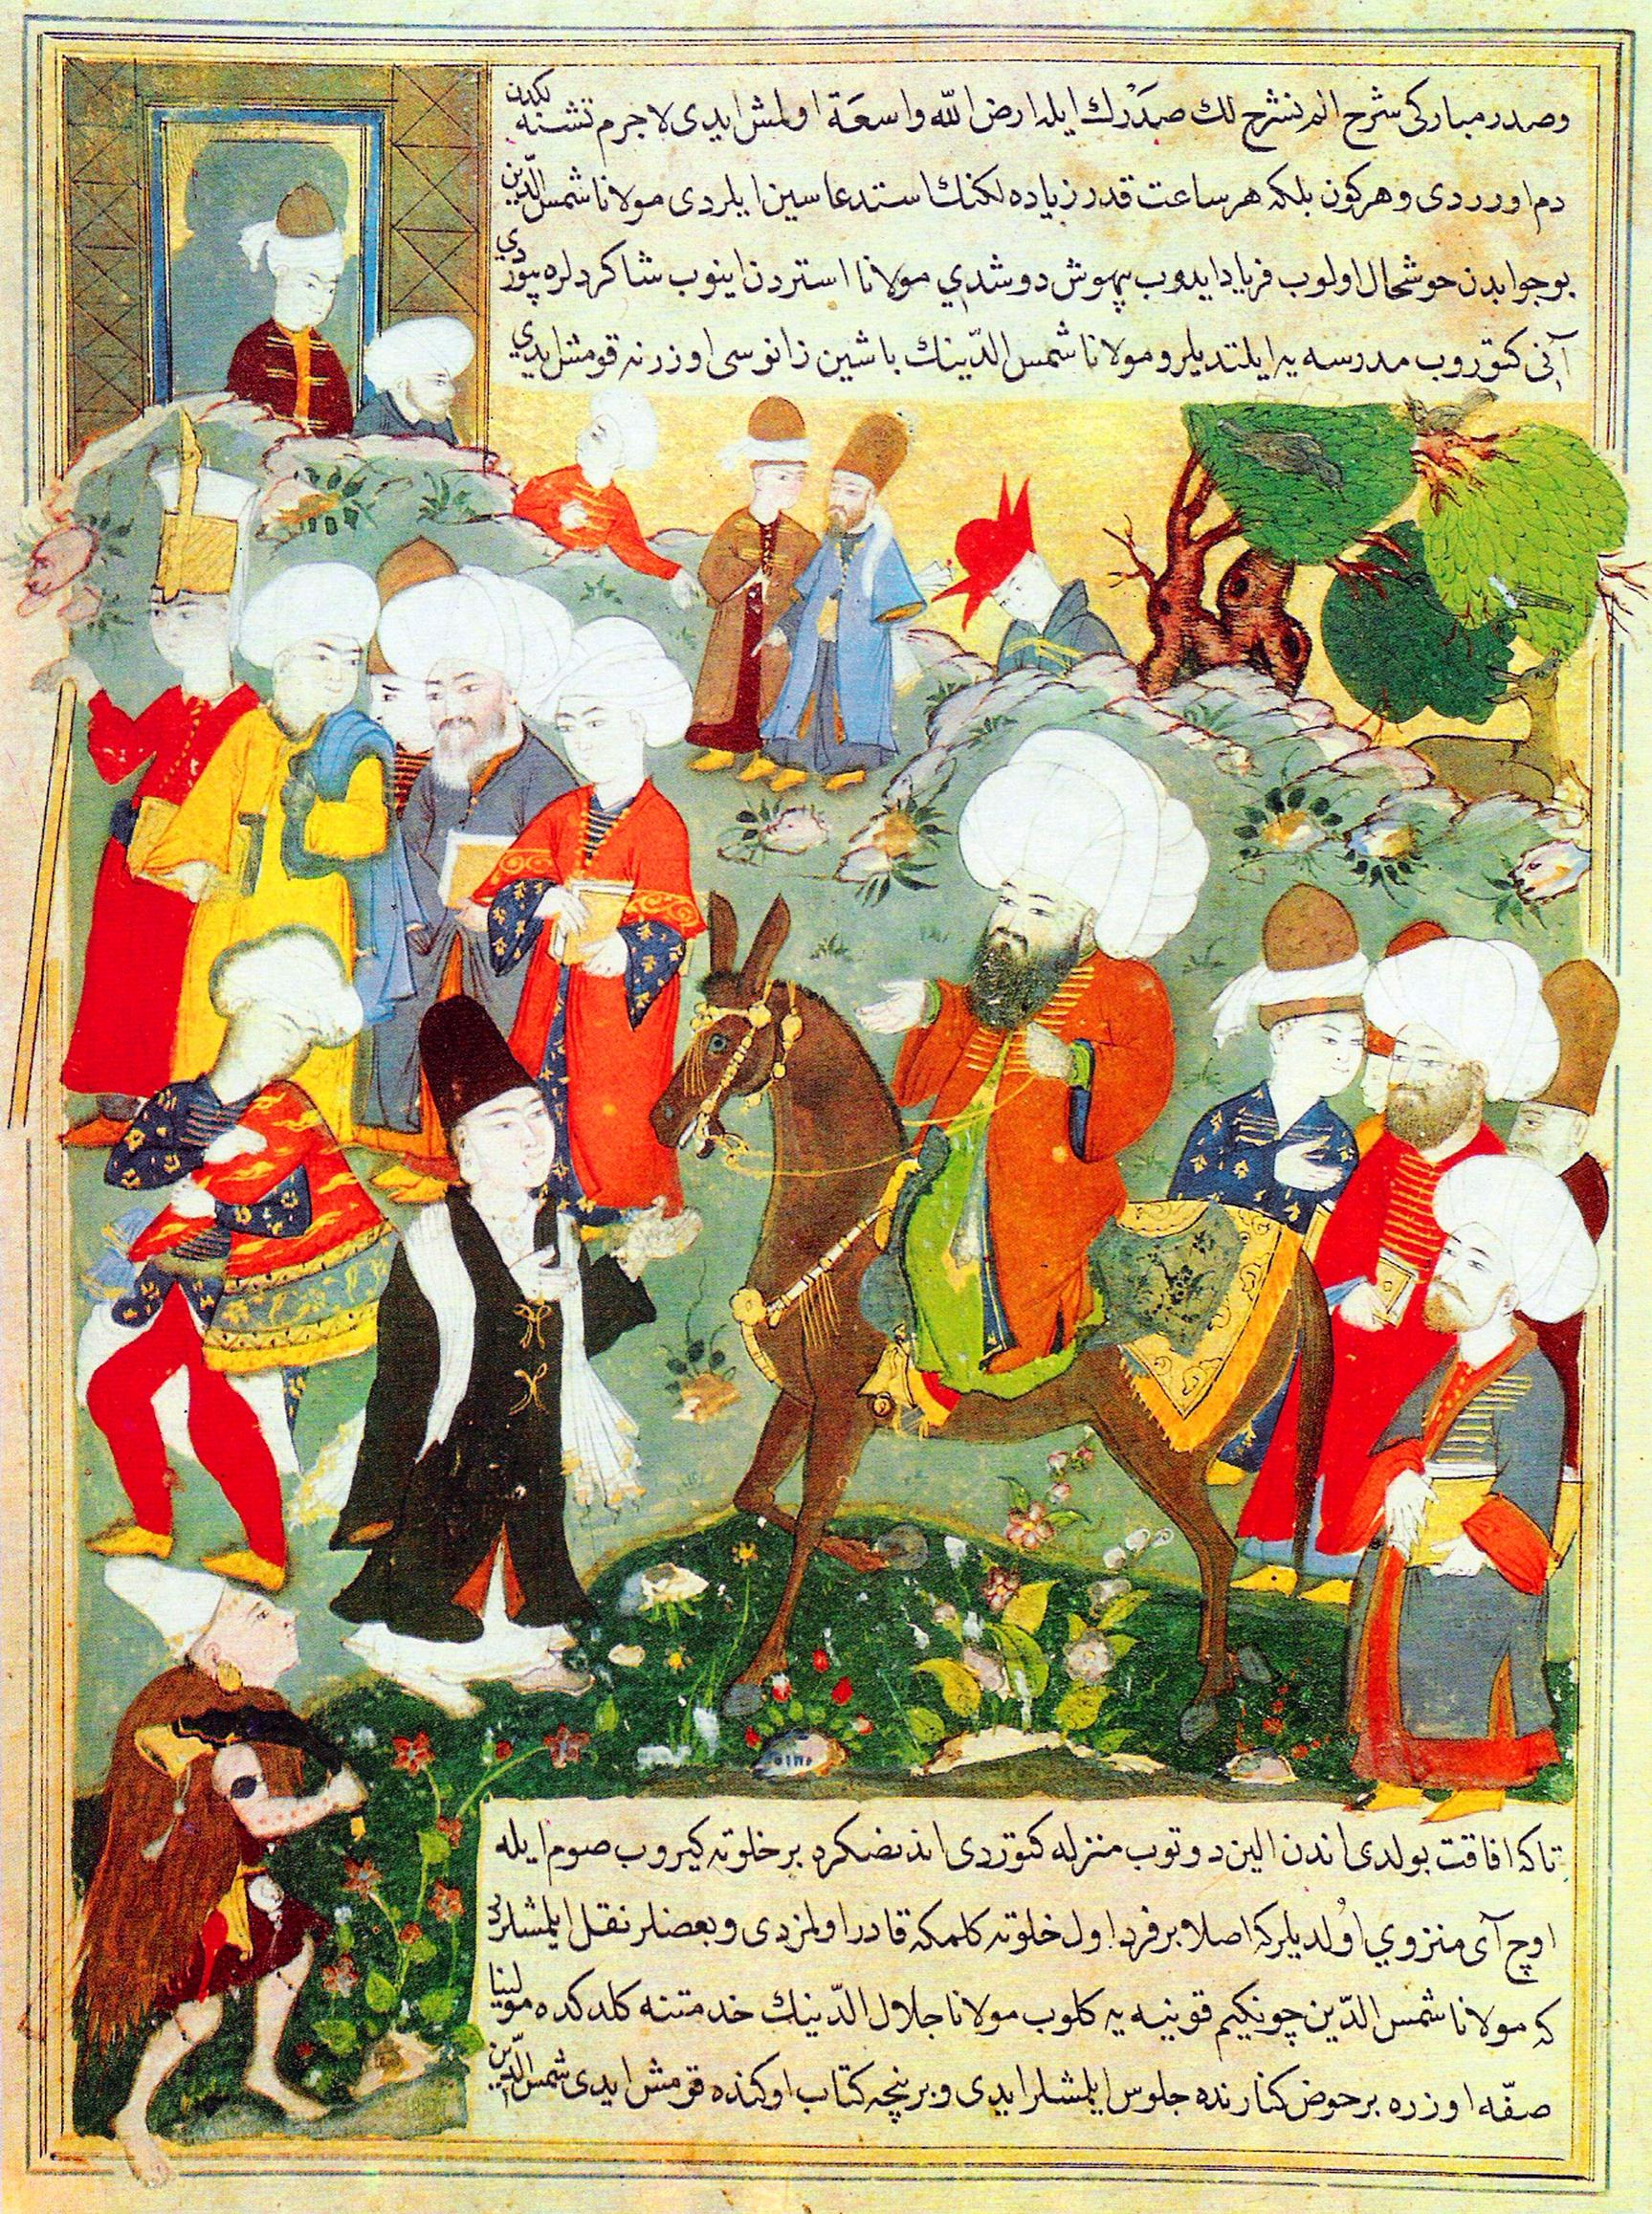 وصدر مباركی شرح الم نشرح لك صَدْرَك ایله ارض اللّٰه واسعَة اولمش ایدی لا جرم تشنه لكدن
دم اورردی و هركون بلكه هر ساعت قدر زیاده لكنك استدعاسین ایلردی مولانا شمس الدّین
بو جوابدن خوشحال اولوب فریاد ایدوب بیهوش دوشدي مولانا استردن اینوب شاكردلره بیوردي
آنی كتوروب مدرسه یه ایلتدیلر و مولانا شمس الدّینك باشین زانوسی اوزرنه قومشلدي
تا كه افاقت بولدی اندن الین دوتوب منزله كتوردی اندنصكره بر خلوته كیروب صوم ایله
اوچ آی منزوي اولدیلر كه اصلا بر فرد اول خلوته كلمكه قادر اولمزدی و بعضلر نقل ایلمشلر
كه مولانا شمس الدّین چونكیم قونیه یه كلوب مولانا جلال الدّینك خدمتنه كلدكده مولینا
صفّه اوزره بر حوض كنارنده جلوس ایلمشلر ایدی و بر نیچه كتاب اوكنده قومش ایدی شمس الدّین